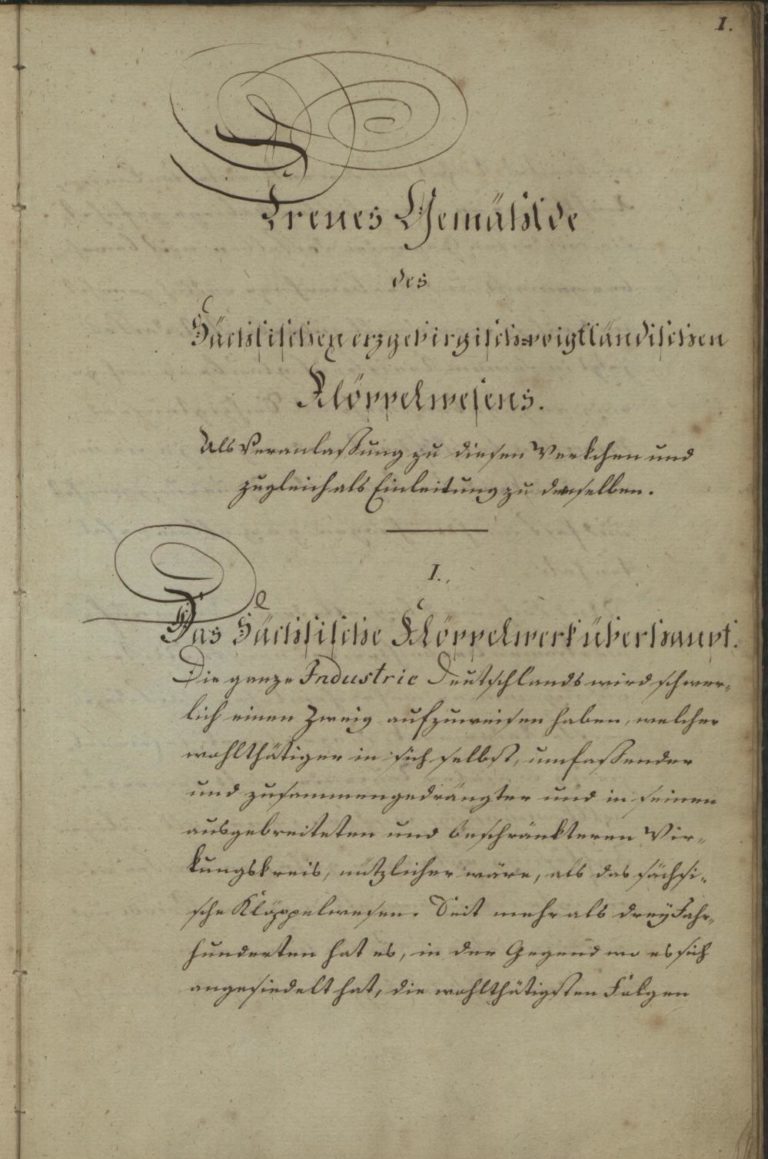 1.
Treues Gemählde
des
Sächsischen erzgebirgisch-voigtländischen
Klöppelwesens.
Als Veranlaßung zu diesen Werkchen und
zugleich als Einleitung zu denselben.
I.
Das Sächsische Klöppelwerk überhaupt.
Die ganze Industrie Deutschlands wird schwer-
lich einen Zweig aufzuweisen haben, welcher
wohlthätiger in sich selbst, umfaßender
und zusammengedrängter und in seinen
ausgebreiteten und beschränkteren Wir-
kungskreis, nützlicher wäre, als das sächsi-
sche Klöppelwesen. Seit mehr als drey Jahr-
hunderten hat es, in der Gegend wo es sich
angesiedelt hat, die wohlthätigsten Folgen